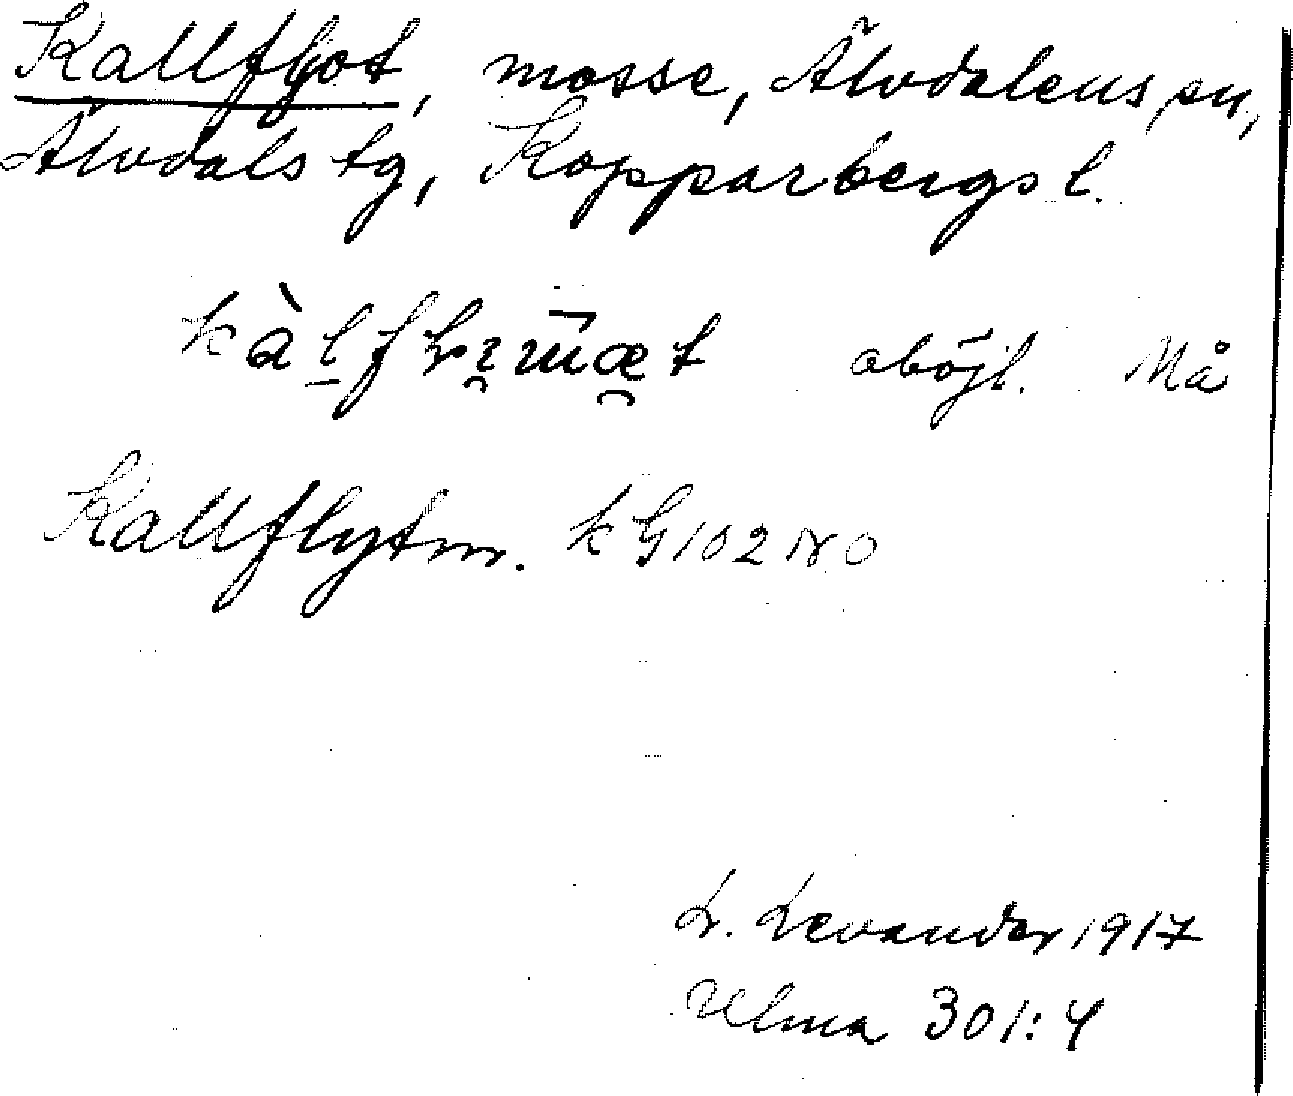 Kallfljot, mosse, Älvdalens sn,
Älvdals tg, Kopparbergs l.
oböjl. Må
Kallflytm. k G 102 NO
L. Levander 1917
Ulma 301:4